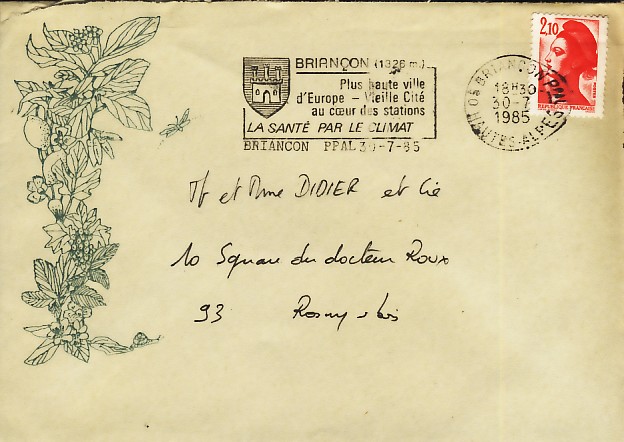 BRIANÇON (1326 m.)
Plus haute ville
d'Europe - Vieille Cité
au cœur des stations
LA SANTÉ PAR LE CLIMAT
BRIANCON PPAL 30-7-85
2,10
REPUBLIQUE FRANÇAISE
05 BRIANÇON PPAL
18H30
30-7
1985
HAUTES-ALPES
Mr et Mme DIDIER et Cie
10 Square du docteur Roux
93 Rosny s bois